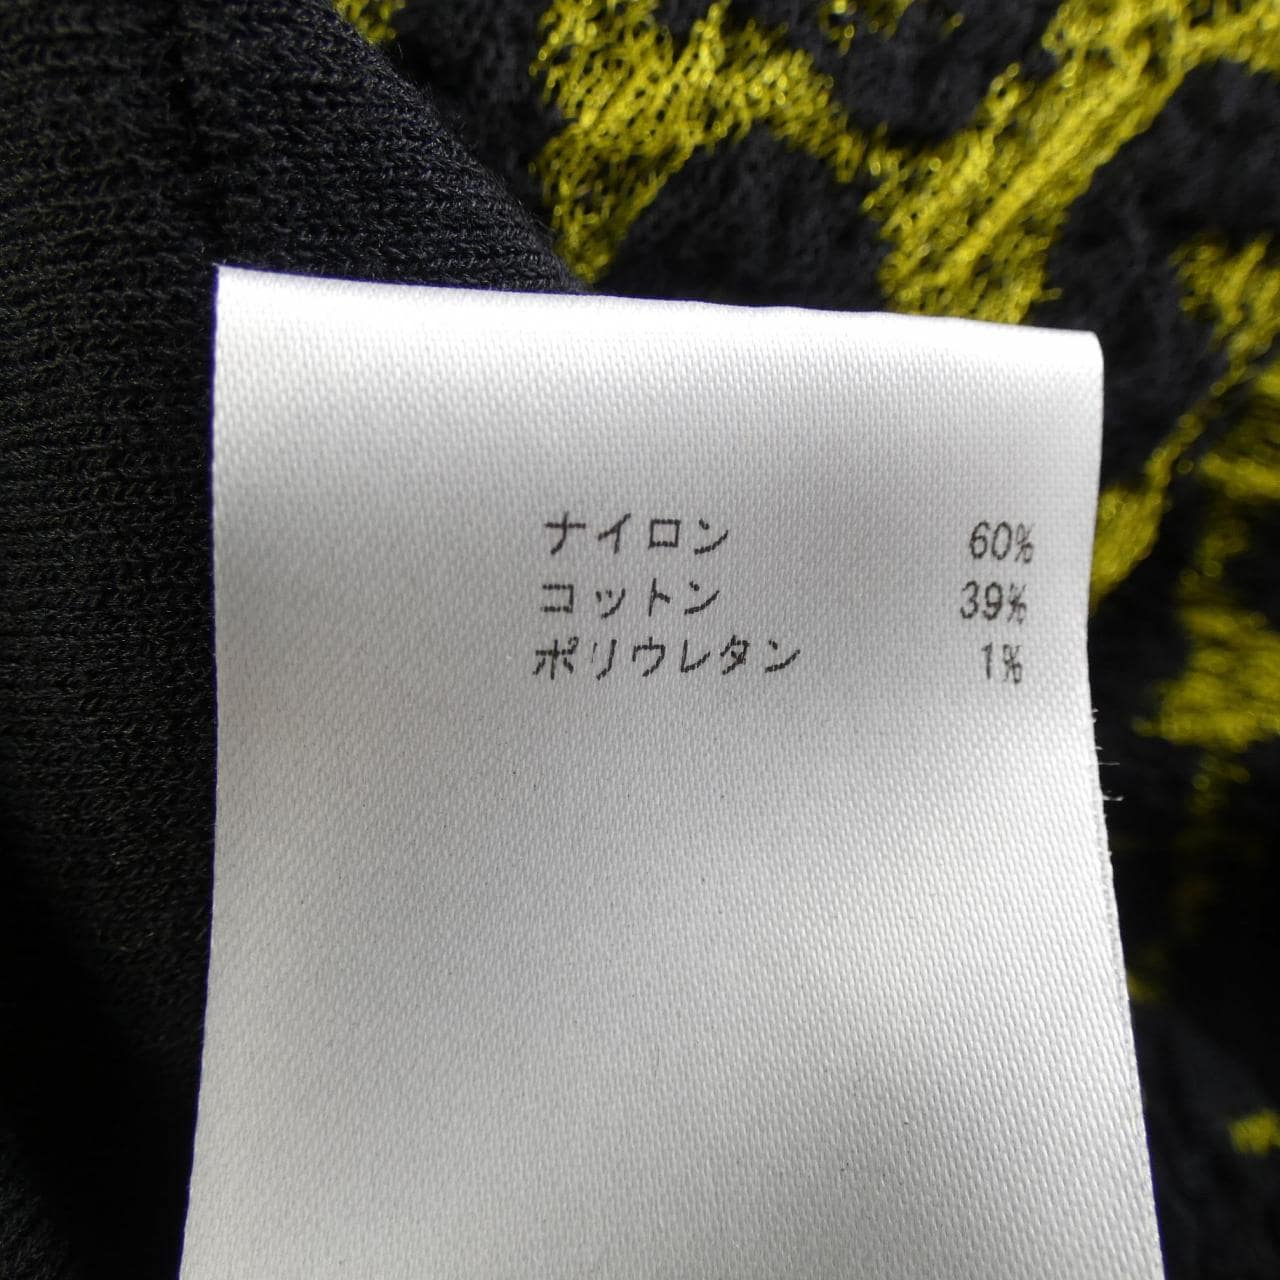 ナイロン 60%
コットン 39%
ポリウレタン 1%